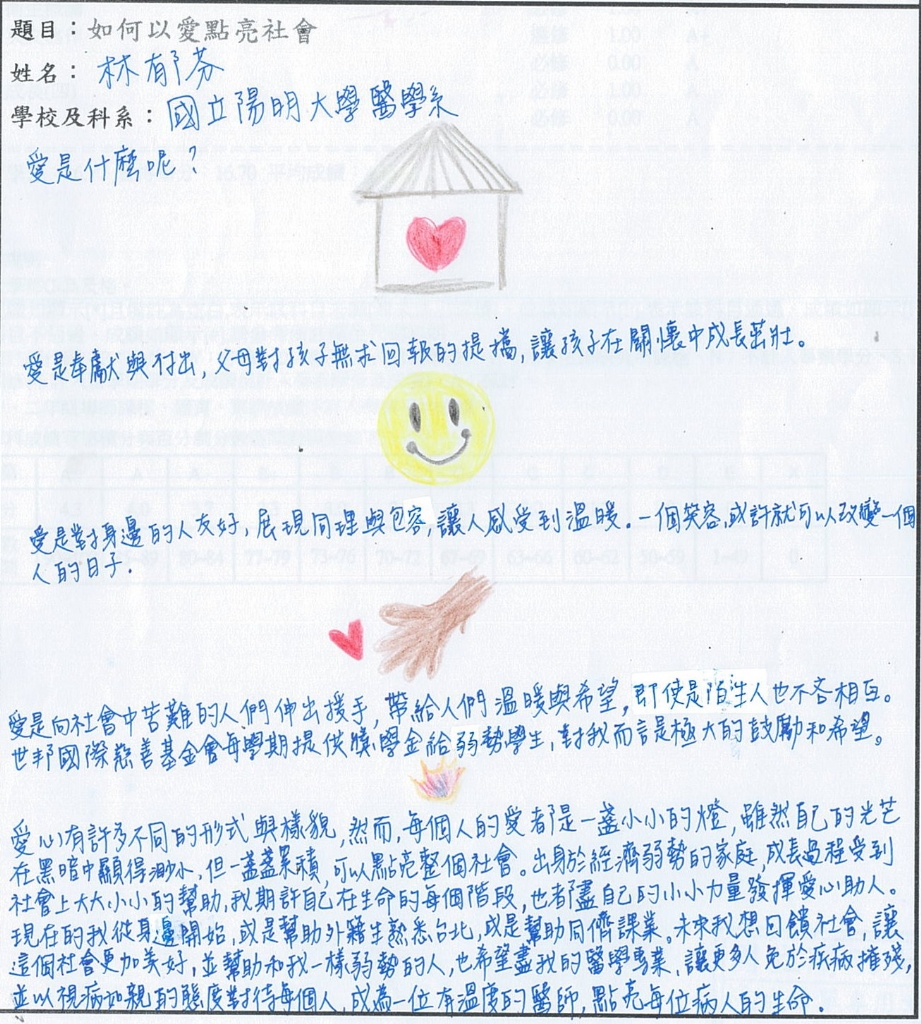 題目：如何以愛點亮社會
姓名：林郁芬
學校及科系：國立陽明大學醫學系
愛是什麼呢？
愛是奉獻與付出，父母對孩子無求回報的提攜，讓孩子在關懷中成長茁壯。
愛是對身邊的人友好，展現同理與包容，讓人感受到溫暖。一個笑容，或許就可以改變一個
人的日子。
愛是向社會中苦難的人們伸出援手，帶給人們溫暖與希望，即使是陌生人也不吝相互。
世邦國際慈善基金會每學期提供獎學金給弱勢學生，對我而言是極大的鼓勵和希望。
愛心有許多不同的形式與樣貌，然而，每個人的愛都是一盞小小的燈，雖然自己的光芒
在黑暗中顯得渺小，但一盞盞累積，可以點亮整個社會。出身於經濟弱勢的家庭，成長過程受到
社會上大大小小的幫助，我期許自己在生命的每個階段，也都盡自己的小小力量發揮愛心助人。
現在的我從身邊開始，或是幫助外籍生熟悉台北，或是幫助同儕課業。未來我想回饋社會，讓
這個社會更加美好，並幫助和我一樣弱勢的人，也希望盡我的醫學專業，讓更多人免於疾病摧殘，
並以視病如親的態度對待每個人，成為一位有溫度的醫師，點亮每位病人的生命。